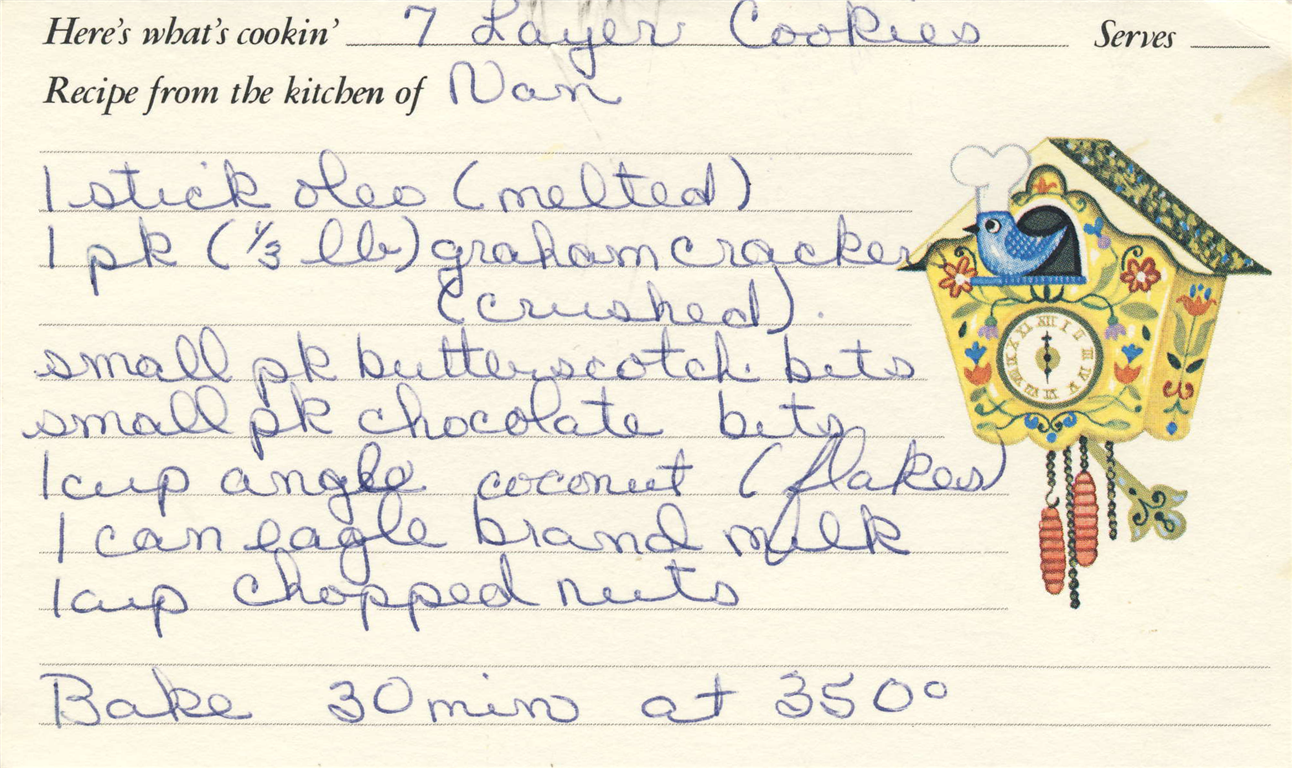 Here's what's cookin' 7 Layer Cookies Serves
Recipe from the kitchen of Nan
1 stick oleo (melted)
1 pk (1/3 lb) graham cracker
(crushed).
small pk butterscotch bits
small pk chocolate bits
1 cup angle coconut (flakes)
1 can eagle brand milk
1 cup chopped nuts
Bake 30 min at 350°